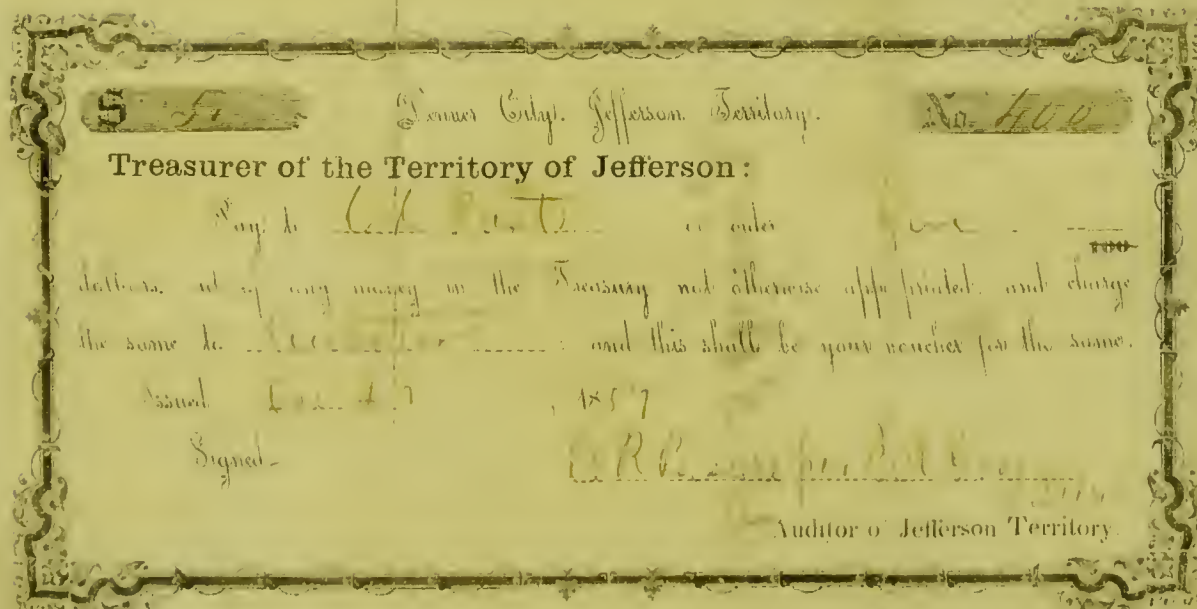 $ 5 Denver City, Jefferson Territory. No. 400
Treasurer of the Territory of Jefferson:
Pay to or order Five 100
dollars, out of any money in the Treasury not otherwise appropriated, and charge
the same to ; and this shall be your voucher for the same.
Issued , 1859
Signed
Auditor of Jefferson Territory.